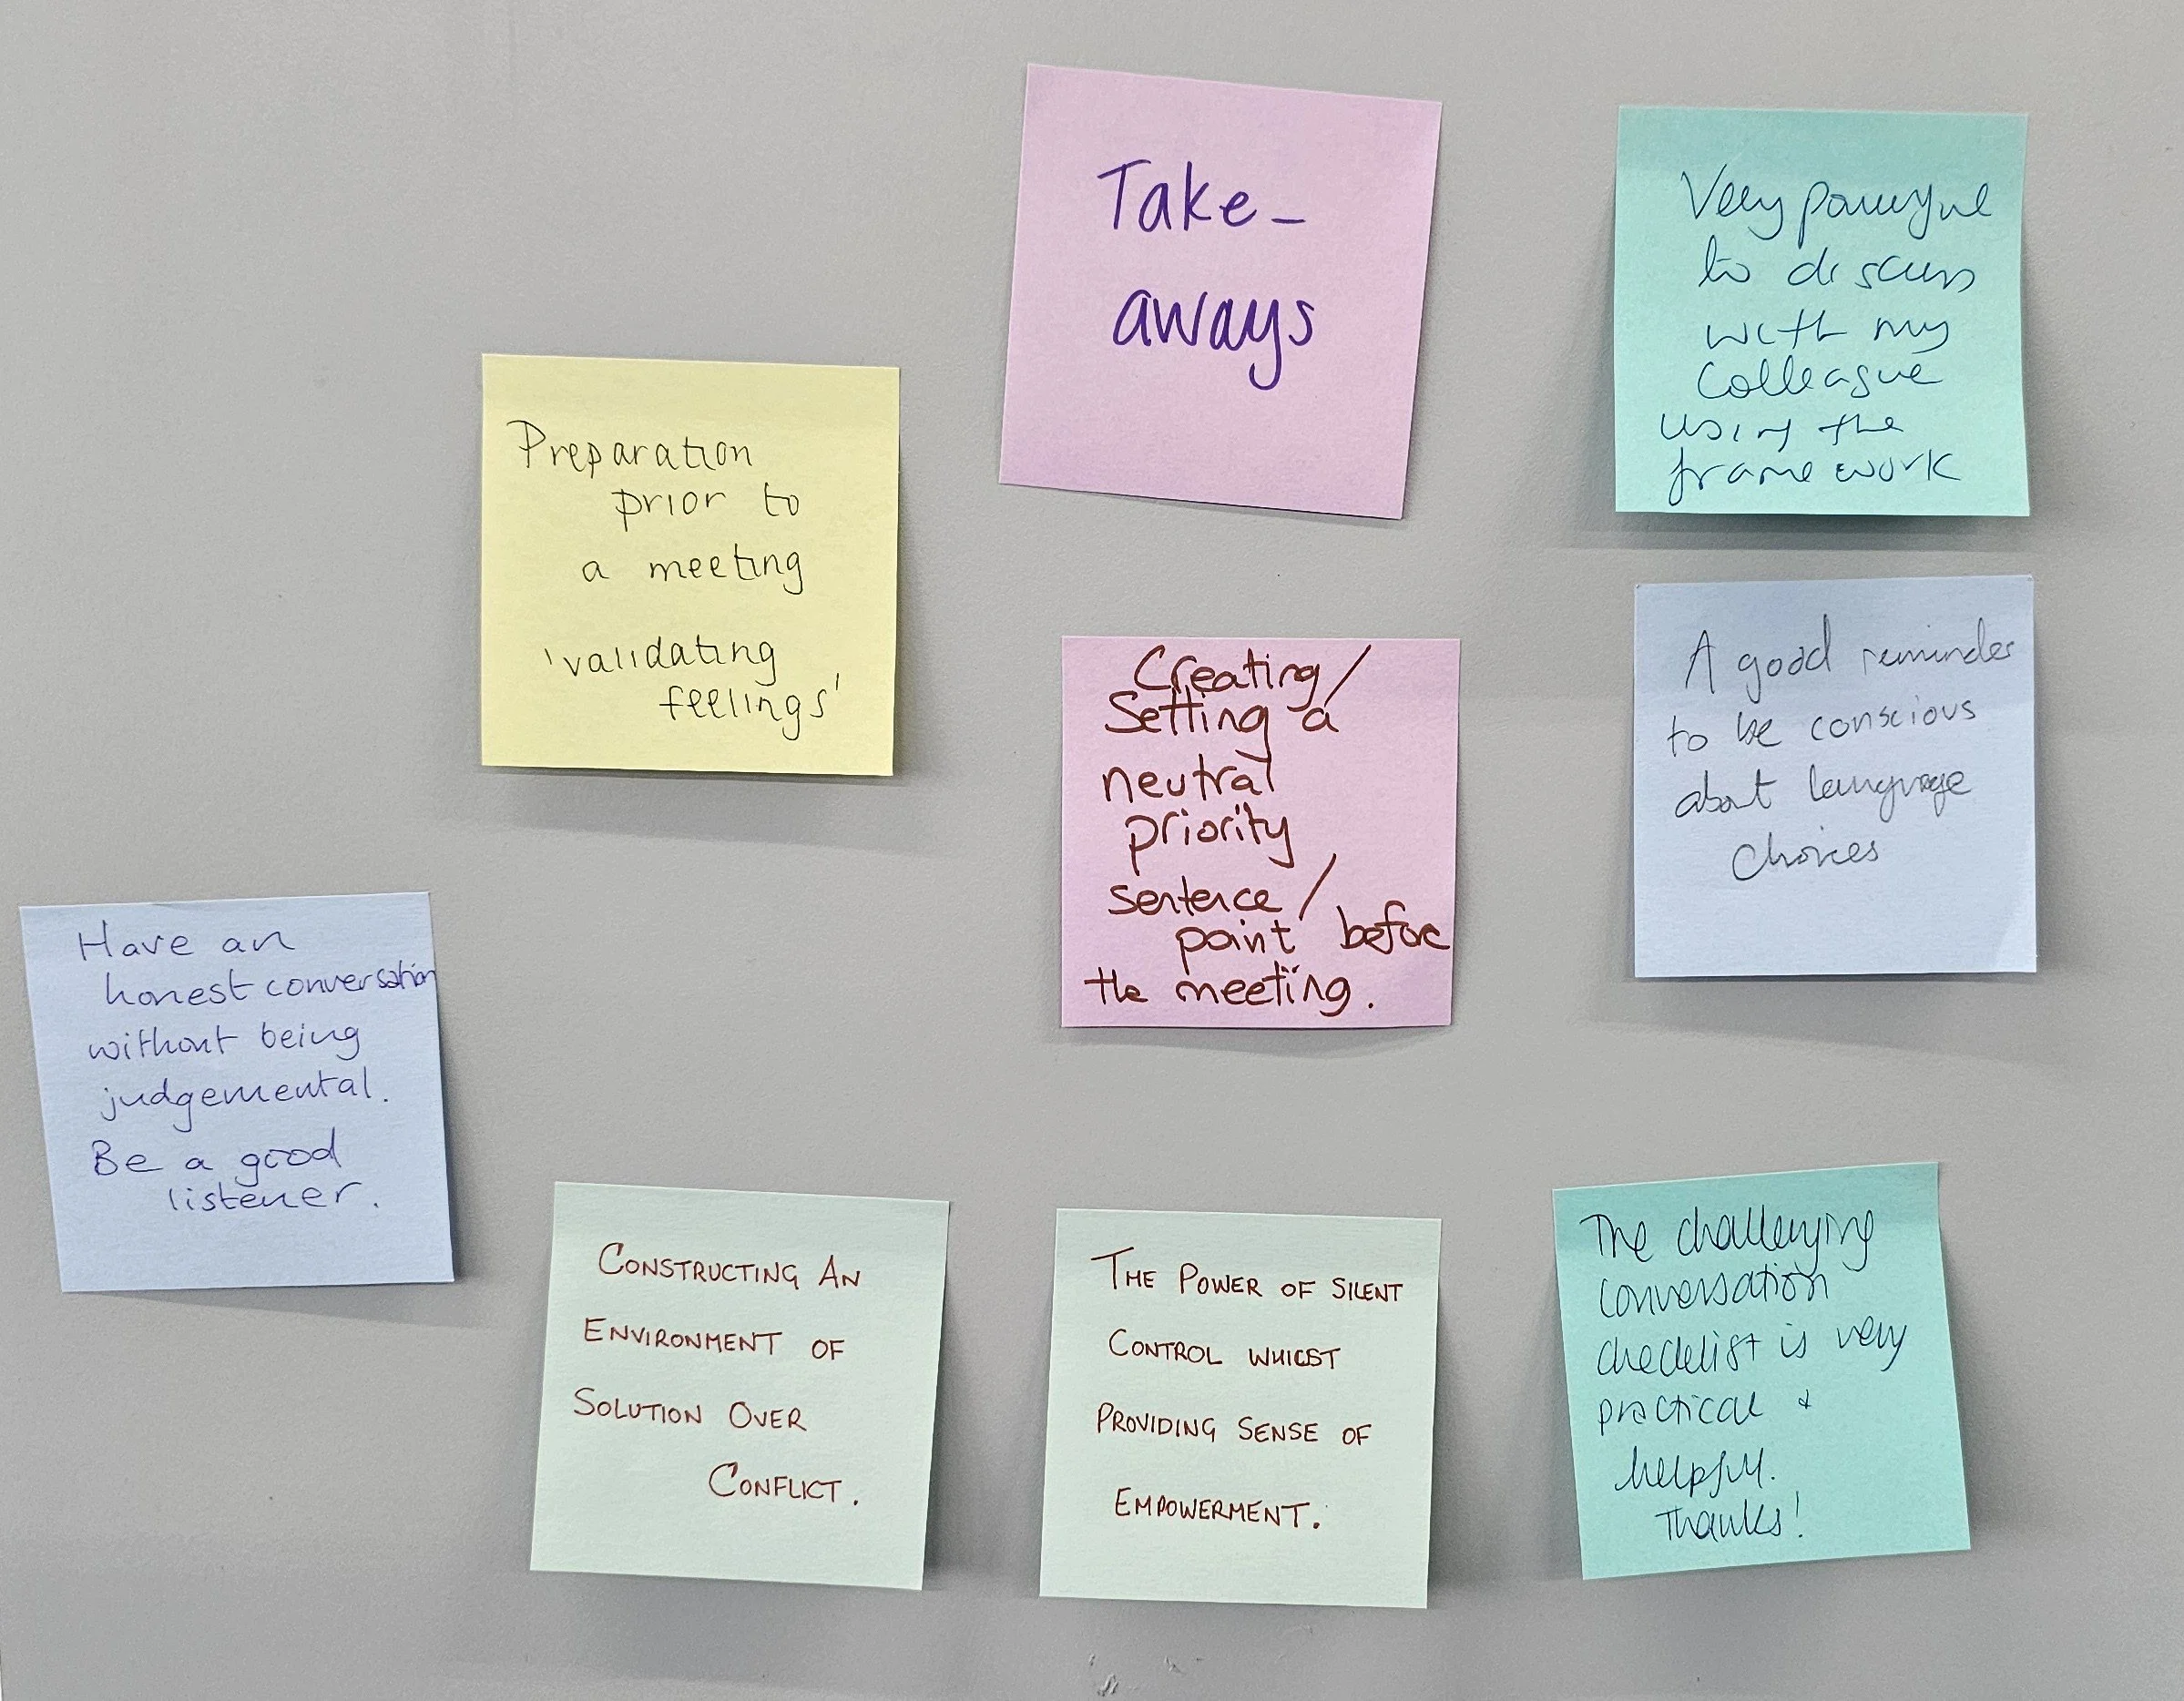 Take-
aways
Very powerful
to discuss
with my
colleague
using the
framework
Preparation
prior to
a meeting
'validating
feelings'
Creating/
Setting a
neutral
priority
sentence/
point before
the meeting.
A good reminder
to be conscious
about language
choices
Have an
honest conversation
without being
judgemental.
Be a good
listener.
CONSTRUCTING AN
ENVIRONMENT OF
SOLUTION OVER
CONFLICT.
THE POWER OF SILENT
CONTROL WHILST
PROVIDING SENSE OF
EMPOWERMENT.
The challenging
conversation
checklist is very
practical +
helpful.
Thanks!